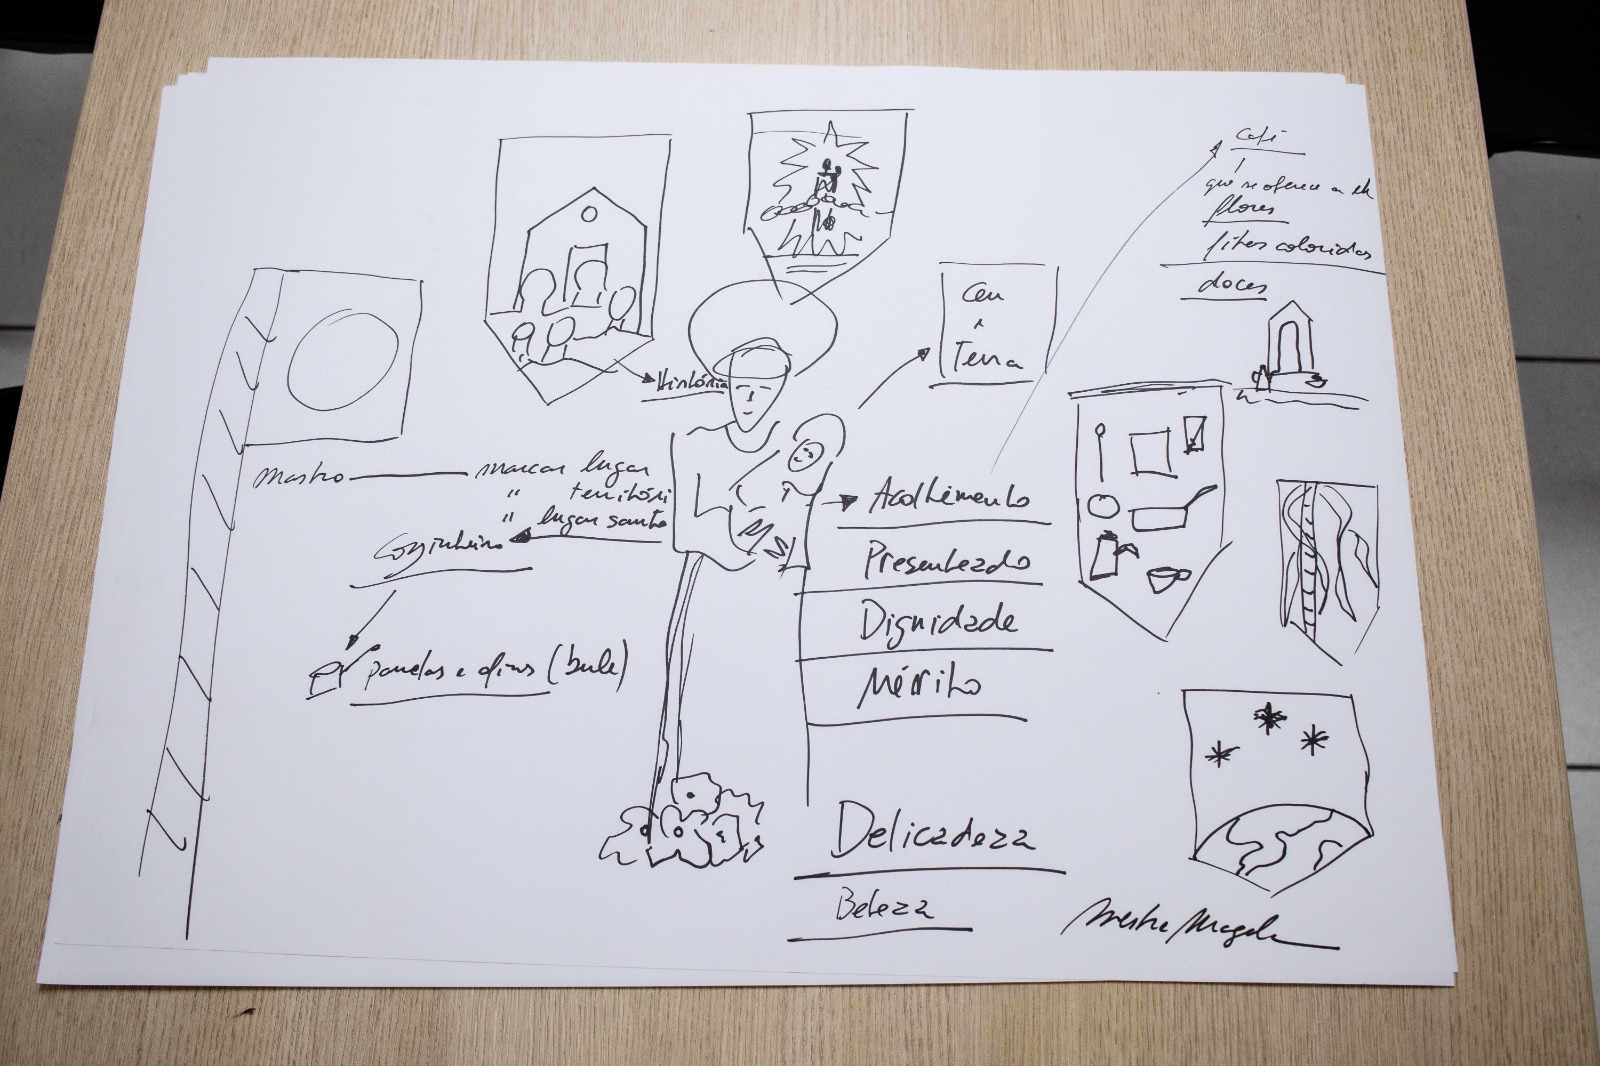 Café
que se oferece a ela
flores
fitas coloridas
doces
Céu
e
Terra
História
mastro
marcar lugar
" territóri
" lugar santo
Cozinheiro
panelas e afins (bule)
Acolhimento
Presenteado
Dignidade
Mérito
Delicadeza
Beleza